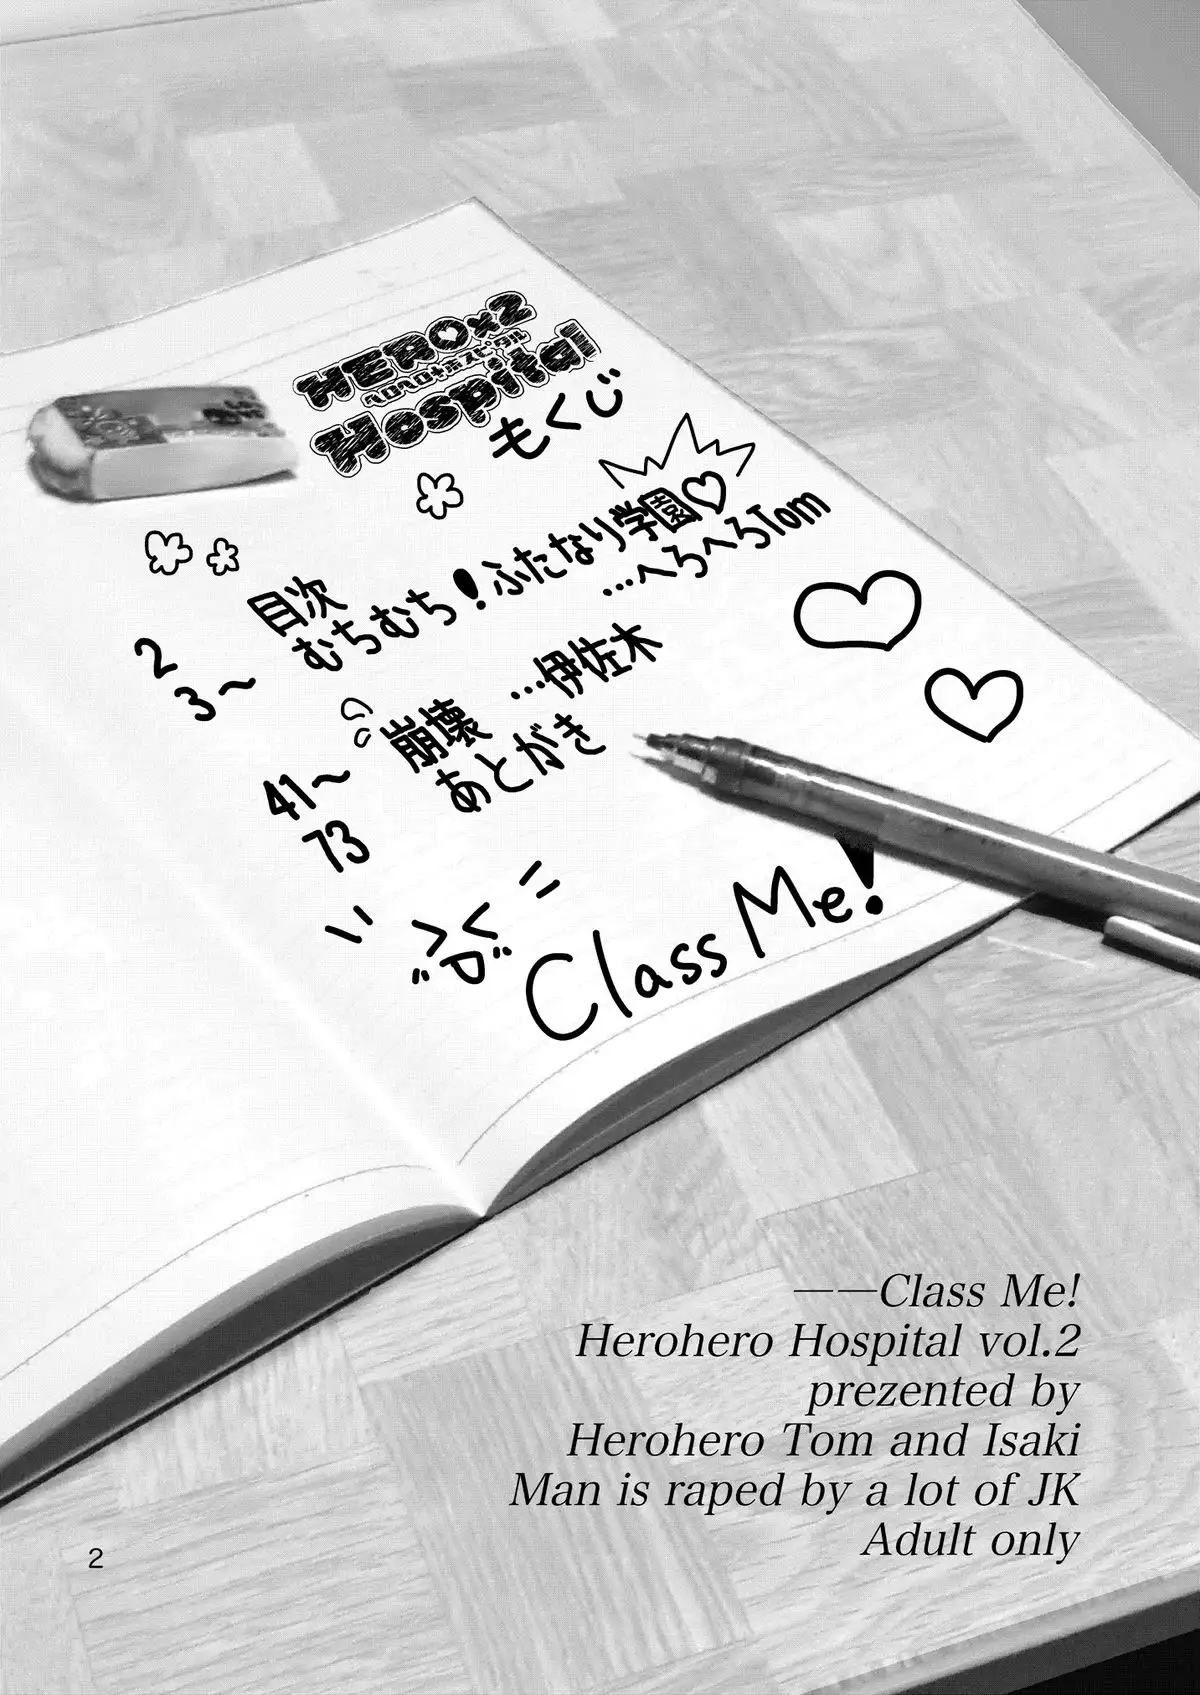 HERO×2
ヘロヘロ+ホスピタル
Hospital
もくじ
2 目次
3〜 むちむち!ふたなり学園♡
…へろへろTom
41〜 崩壊 …伊佐木
73 あとがき
Class Me!
——Class Me!
Herohero Hospital vol.2
prezented by
Herohero Tom and Isaki
Man is raped by a lot of JK
Adult only
2